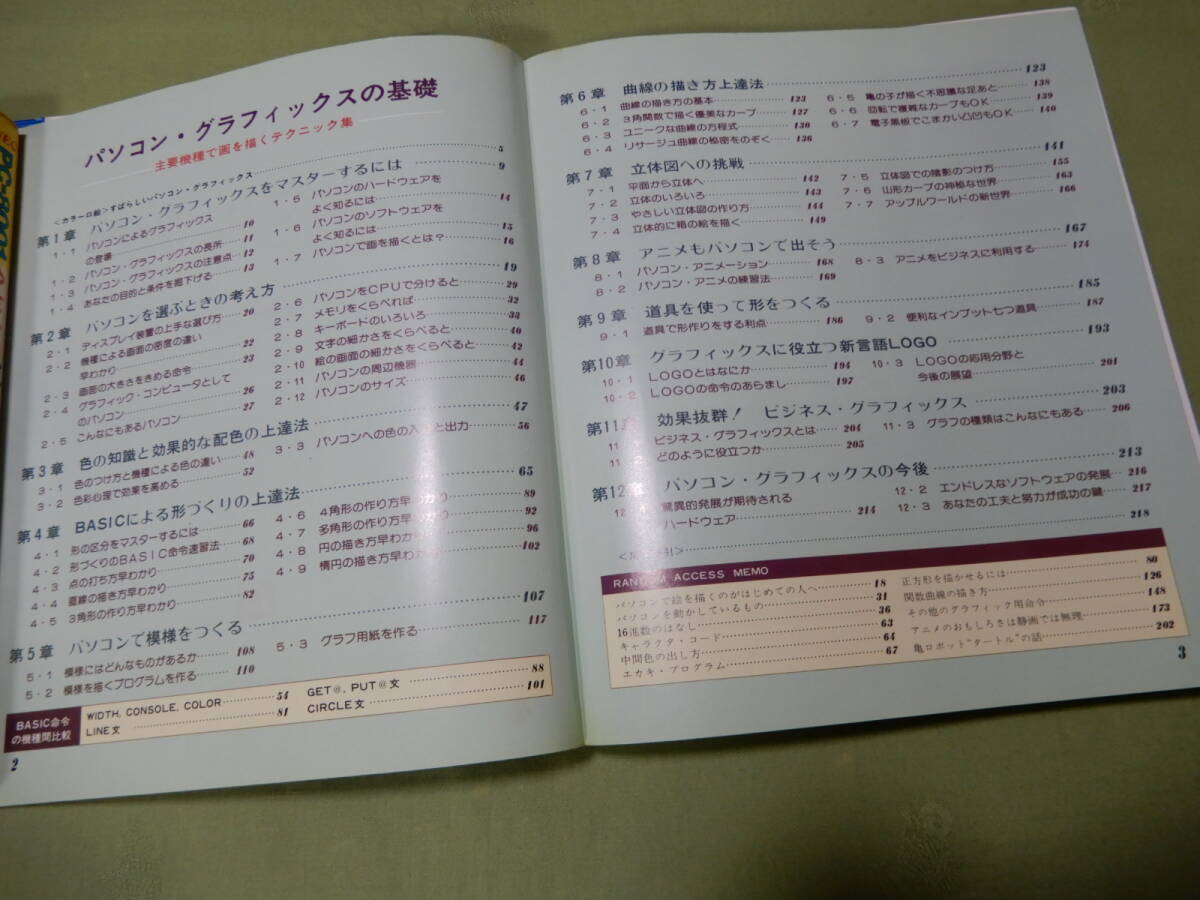 パソコン・グラフィックスの基礎
主要機種で画を描くテクニック集
<カラー口絵>すばらしいパソコン・グラフィックス 5
第1章 パソコン・グラフィックスをマスターするには 9
1・1 パソコンによるグラフィックス
の登場 10
1・2 パソコン・グラフィックスの長所 11
1・3 パソコン・グラフィックスの注意点 12
1・4 あなたの目的と条件を掘下げる 13
1・5 パソコンのハードウェアを
よく知るには 14
1・6 パソコンのソフトウェアを
よく知るには 15
1・7 パソコンで画を描くとは? 16
第2章 パソコンを選ぶときの考え方 19
2・1 ディスプレイ装置の上手な選び方 20
2・2 機種による画面の密度の違い
早わかり 22
2・3 画面の大きさをきめる命令 23
2・4 グラフィック・コンピュータとして
のパソコン 26
2・5 こんなにもあるパソコン 27
2・6 パソコンをCPUで分けると 29
2・7 メモリをくらべれば 32
2・8 キーボードのいろいろ 33
2・9 文字の細かさをくらべると 40
2・10 絵の画面の細かさをくらべると 42
2・11 パソコンの周辺機器 44
2・12 パソコンのサイズ 46
第3章 色の知識と効果的な配色の上達法 47
3・1 色のつけ方と機種による色の違い 48
3・2 色彩心理で効果を高める 52
3・3 パソコンへの色の入力と出力 56
第4章 BASICによる形づくりの上達法 65
4・1 形の区分をマスターするには 66
4・2 形づくりのBASIC命令速習法 68
4・3 点の打ち方早わかり 70
4・4 直線の描き方早わかり 75
4・5 3角形の作り方早わかり 82
4・6 4角形の作り方早わかり 89
4・7 多角形の作り方早わかり 92
4・8 円の描き方早わかり 96
4・9 楕円の描き方早わかり 102
第5章 パソコンで模様をつくる 107
5・1 模様にはどんなものがあるか 108
5・2 模様を描くプログラムを作る 110
5・3 グラフ用紙を作る 117
BASIC命令
の機種間比較
WIDTH, CONSOLE, COLOR 54
LINE文 81
GET@, PUT@文 88
CIRCLE文 101
2
第6章 曲線の描き方上達法 123
6・1 曲線の描き方の基本 123
6・2 3角関数で描く優美なカーブ 127
6・3 ユニークな曲線の方程式 130
6・4 リサージュ曲線の秘密をのぞく 136
6・5 亀の子が描く不思議な足あと 138
6・6 回転で複雑なカーブもOK 139
6・7 電子黒板でこまかい凸凹もOK 140
第7章 立体図への挑戦 141
7・1 平面から立体へ 142
7・2 立体のいろいろ 143
7・3 やさしい立体図の作り方 144
7・4 立体的に箱の絵を描く 149
7・5 立体図での陰影のつけ方 155
7・6 山形カーブの神秘な世界 163
7・7 アップルワールドの新世界 166
第8章 アニメもパソコンで出そう 167
8・1 パソコン・アニメーション 168
8・2 パソコン・アニメの練習法 169
8・3 アニメをビジネスに利用する 174
第9章 道具を使って形をつくる 185
9・1 道具で形作りをする利点 186
9・2 便利なインプット七つ道具 187
第10章 グラフィックスに役立つ新言語LOGO 193
10・1 LOGOとはなにか 194
10・2 LOGOの命令のあらまし 197
10・3 LOGOの応用分野と
今後の展望 201
第11章 効果抜群! ビジネス・グラフィックス 203
ビジネス・グラフィックスとは 204
11・2 どのように役立つか 205
11・3 グラフの種類はこんなにもある 206
第12章 パソコン・グラフィックスの今後 213
驚異的発展が期待される
ハードウェア 214
12・2 エンドレスなソフトウェアの発展 216
12・3 あなたの工夫と努力が成功の鍵 217
218
RANDOM ACCESS MEMO
パソコンで絵を描くのがはじめての人へ 18
パソコンを動かしているもの 31
16進数のはなし 36
キャラクタ・コード 63
中間色の出し方 64
エカキ・プログラム 67
正方形を描かせるには 80
関数曲線の描き方 126
その他のグラフィック用命令 148
アニメのおもしろさは静画では無理 173
亀ロボット"タートル"の話 202
3